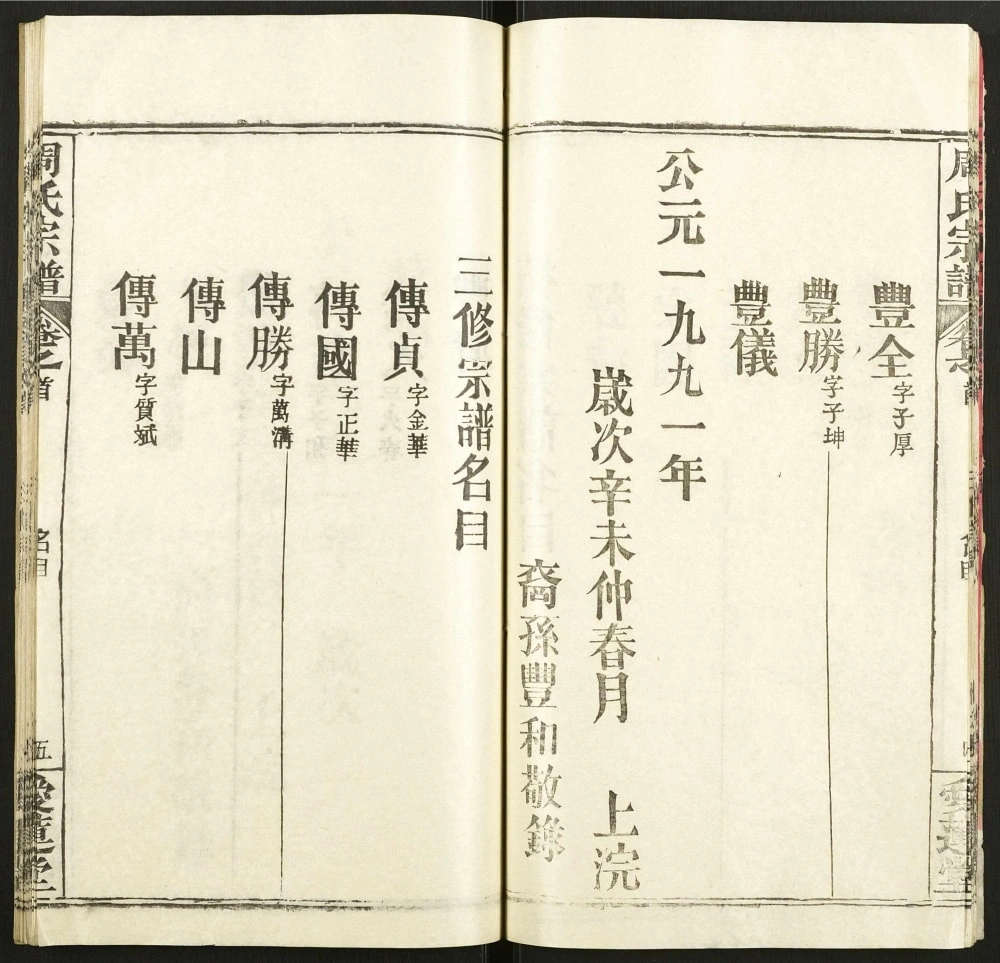 周氏宗譜
首
名目
愛蓮堂
豐全字子厚
豐勝字子坤
豐儀
公元一九九一年
歲次辛未仲春月 上浣
裔孫豐和敬錄
三修宗譜名目
傳貞字金華
傳國字正華
傳勝字萬溝
傳山
傳萬字質斌
周氏宗譜
卷之首
名目
五
愛蓮堂